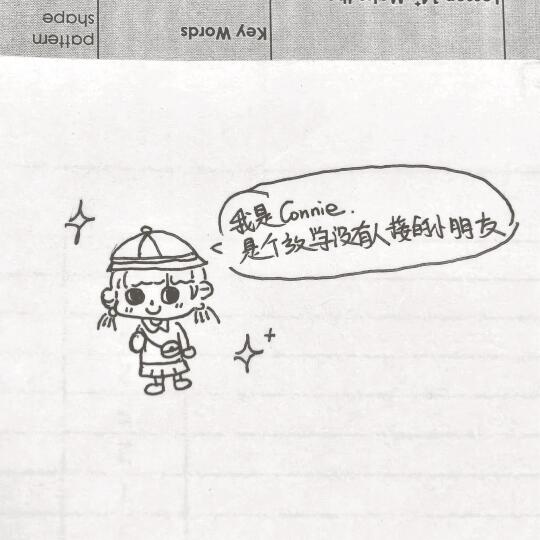 我是Connie.
是个放学没有人接的小朋友
Key Words
pattern
shape